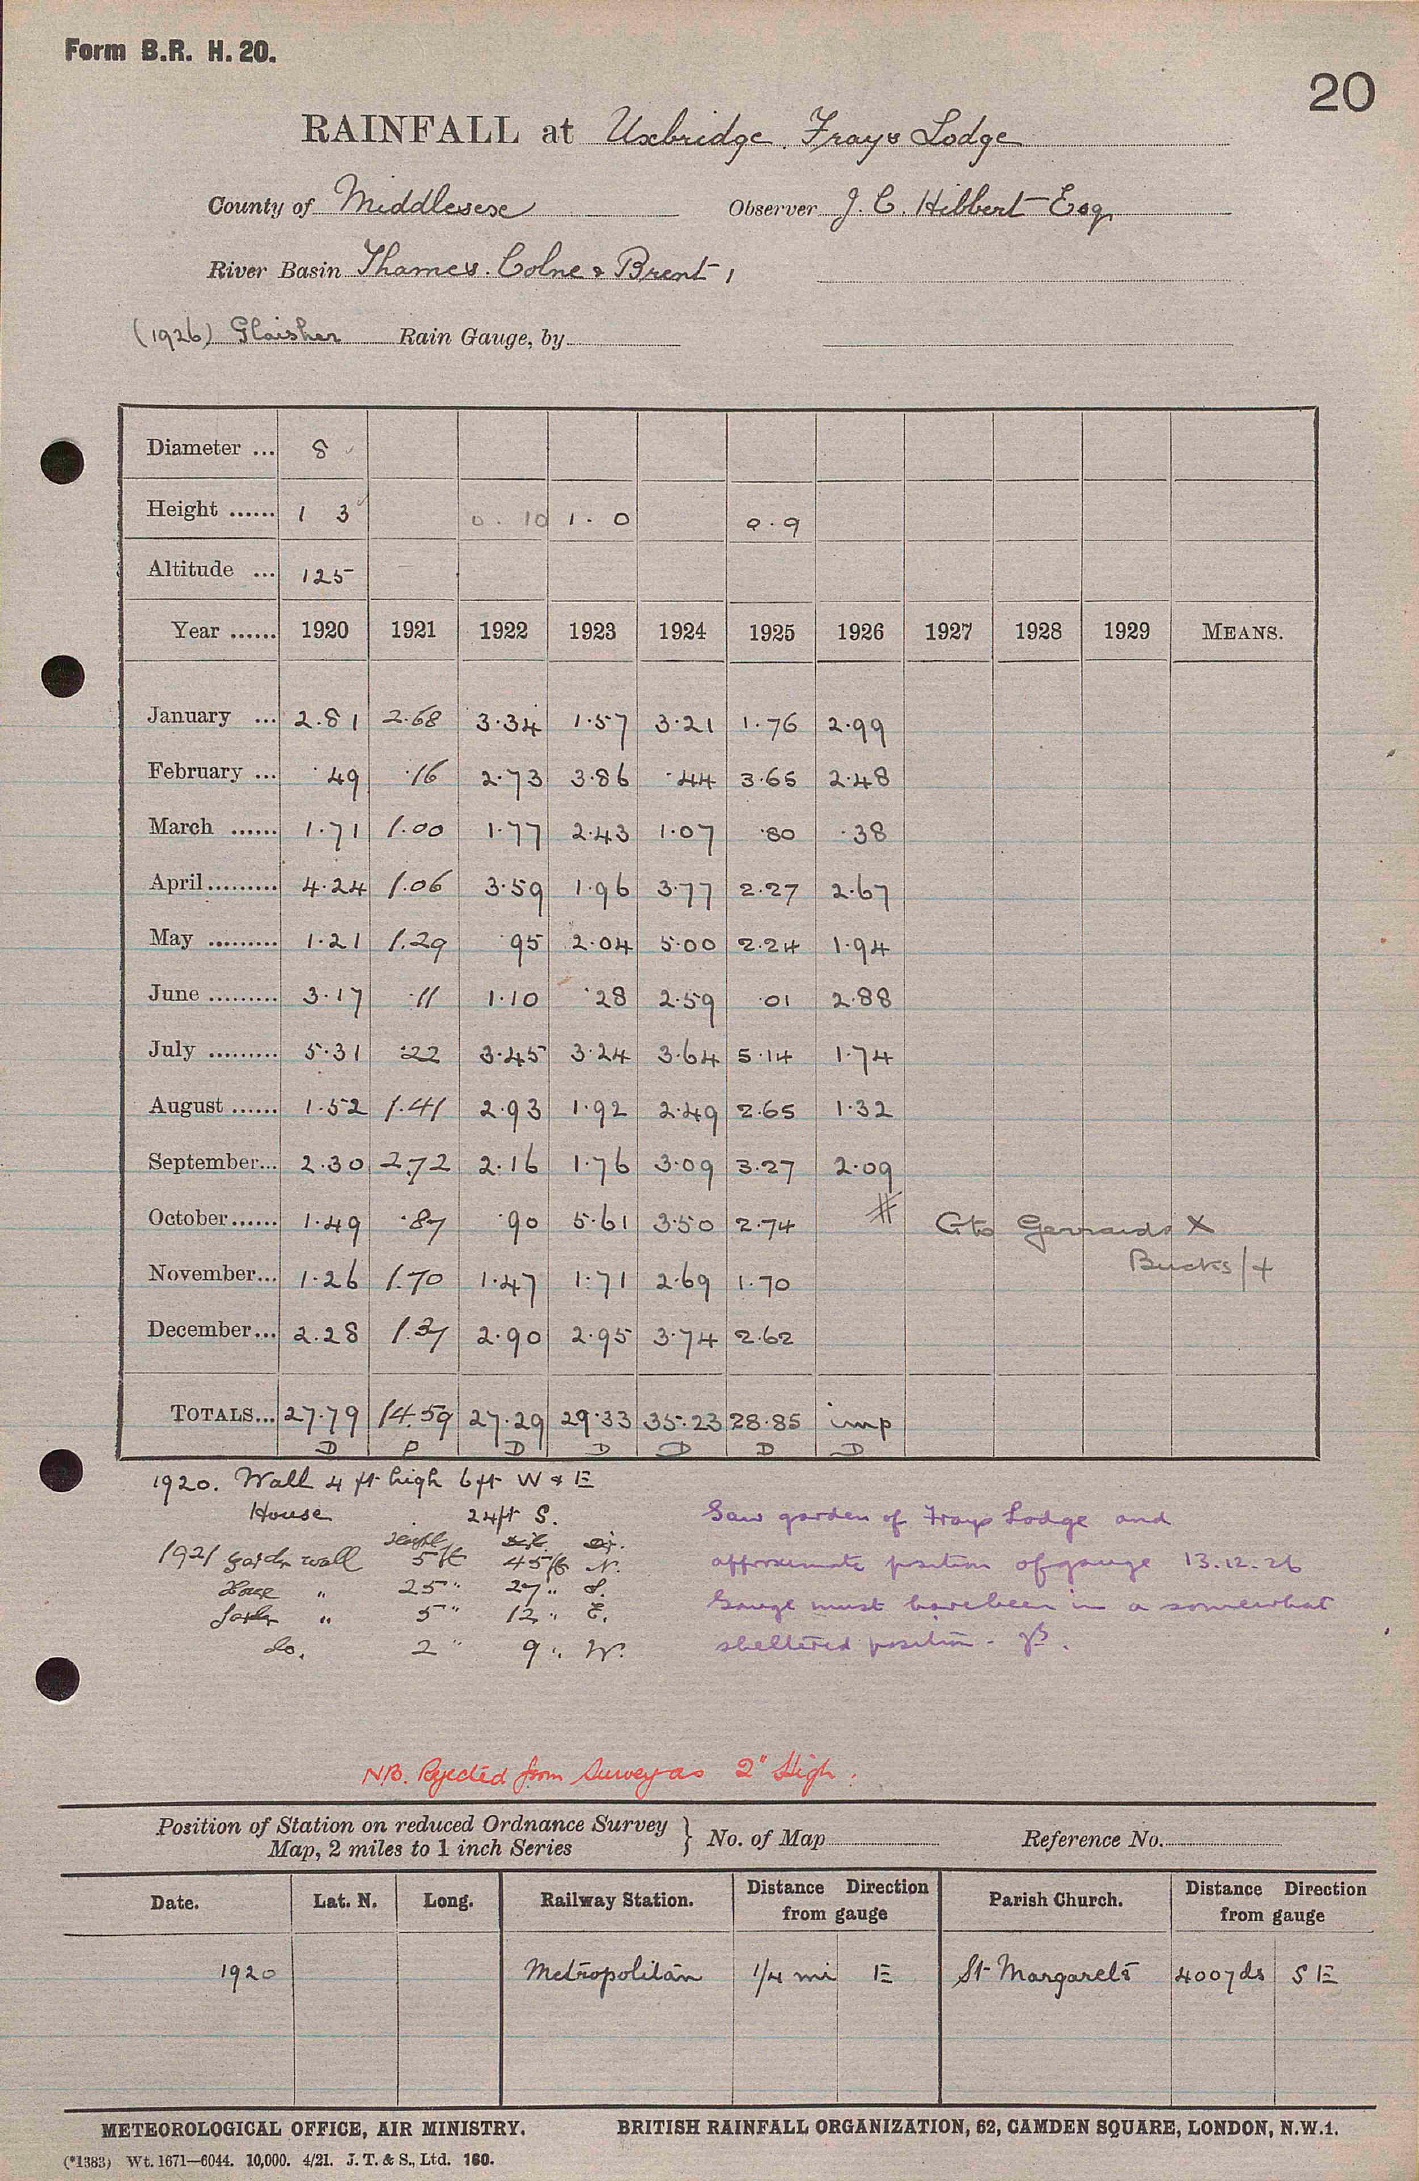 Form B.R. H. 20.
20
RAINFALL at Uxbridge. Frays Lodge
County of Middlesex Observer J. C. Hibbert Esq
River Basin Thames. Colne & Brent 1
(1926) Glaisher Rain Gauge, by
Diameter ... 8
Height ...... 1 3 0.10 1.0 0.9
Altitude ... 125
Year ...... 1920 1921 1922 1923 1924 1925 1926 1927 1928 1929 MEANS.
January ... 2.81 2.68 3.34 1.57 3.21 1.76 2.99
February ... .49 .16 2.73 3.86 .44 3.65 2.48
March ...... 1.71 1.00 1.77 2.43 1.07 .80 .38
April ......... 4.24 1.06 3.59 1.96 3.77 2.27 2.67
May ......... 1.21 1.29 .95 2.04 5.00 2.24 1.94
June ......... 3.17 .11 1.10 .28 2.59 .01 2.88
July ......... 5.31 .22 3.45 3.24 3.64 5.14 1.74
August ...... 1.52 1.41 2.93 1.92 2.49 2.65 1.32
September... 2.30 2.72 2.16 1.76 3.09 3.27 2.09
October...... 1.49 .87 .90 5.61 3.50 2.74 # Gto Gerrards X
November... 1.26 1.70 1.47 1.71 2.69 1.70 Bucks/4
December... 2.28 1.37 2.90 2.95 3.74 2.62
TOTALS... 27.79 14.59 27.29 29.33 35.23 28.85 imp
D P D D D D D
1920. Wall 4 ft high 6 ft W & E
House 24 ft S.
height dist. dir.
1921 Garden wall 5 ft 45 ft N.
House " 25 " 27 " S.
Garden " 5 " 12 " E.
do. 2 " 9 " W.
Saw garden of Frays Lodge and
approximate position of gauge 13.12.26
Gauge must have been in a somewhat
sheltered position -
NB. Rejected from Survey as 2" High.
Position of Station on reduced Ordnance Survey
Map, 2 miles to 1 inch Series } No. of Map Reference No.
Date. Lat. N. Long. Railway Station. Distance Direction from gauge Parish Church. Distance Direction from gauge
1920 Metropolitan 1/4 mi E St Margarets 400 yds S E
METEOROLOGICAL OFFICE, AIR MINISTRY. BRITISH RAINFALL ORGANIZATION, 62, CAMDEN SQUARE, LONDON, N.W.1.
(*1383) Wt. 1671—6044. 10,000. 4/21. J. T. & S., Ltd. 160.